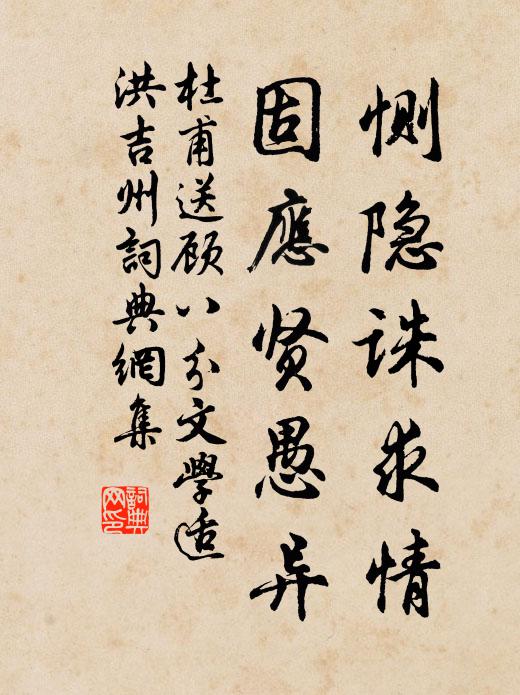 恻隐诛求情
固應贤愚异
杜甫送顾八分文學适
洪吉州詞典網集
詞典网印